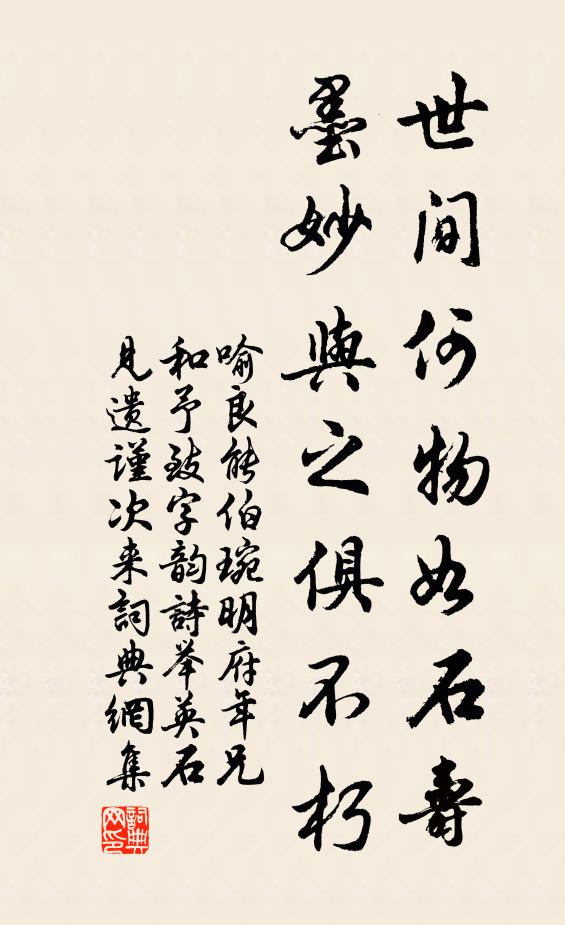 世间何物如石壽
墨妙與之俱不朽
喻良能伯琬明府年兄
和予致字韵詩举英石
見遗謹次来詞典網集
詞典网印